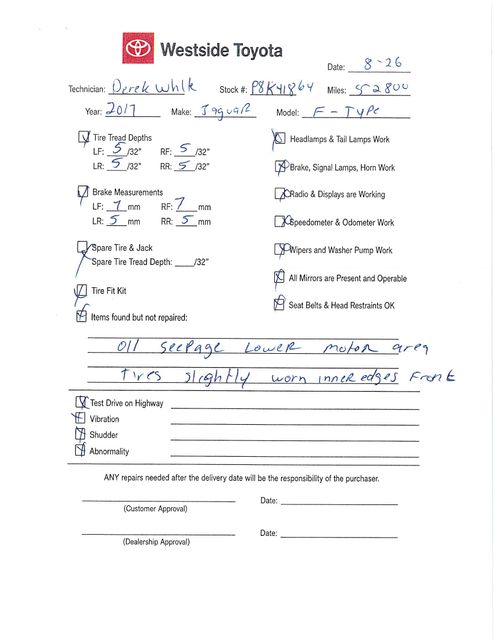 Westside Toyota
Date: 8-26
Technician: Derek Whlk Stock #: P8K41864 Miles: 52800
Year: 2017 Make: Jaguar Model: F-Type
Tire Tread Depths
LF: 5 /32" RF: 5 /32"
LR: 5 /32" RR: 5 /32"
Brake Measurements
LF: 7 mm RF: 7 mm
LR: 5 mm RR: 5 mm
Spare Tire & Jack
Spare Tire Tread Depth: ____/32"
Tire Fit Kit
Items found but not repaired:
Headlamps & Tail Lamps Work
Brake, Signal Lamps, Horn Work
Radio & Displays are Working
Speedometer & Odometer Work
Wipers and Washer Pump Work
All Mirrors are Present and Operable
Seat Belts & Head Restraints OK
Oil seepage Lower motor area
Tires slightly worn inner edges Front
Test Drive on Highway
Vibration
Shudder
Abnormality
ANY repairs needed after the delivery date will be the responsibility of the purchaser.
Date:
(Customer Approval)
Date:
(Dealership Approval)